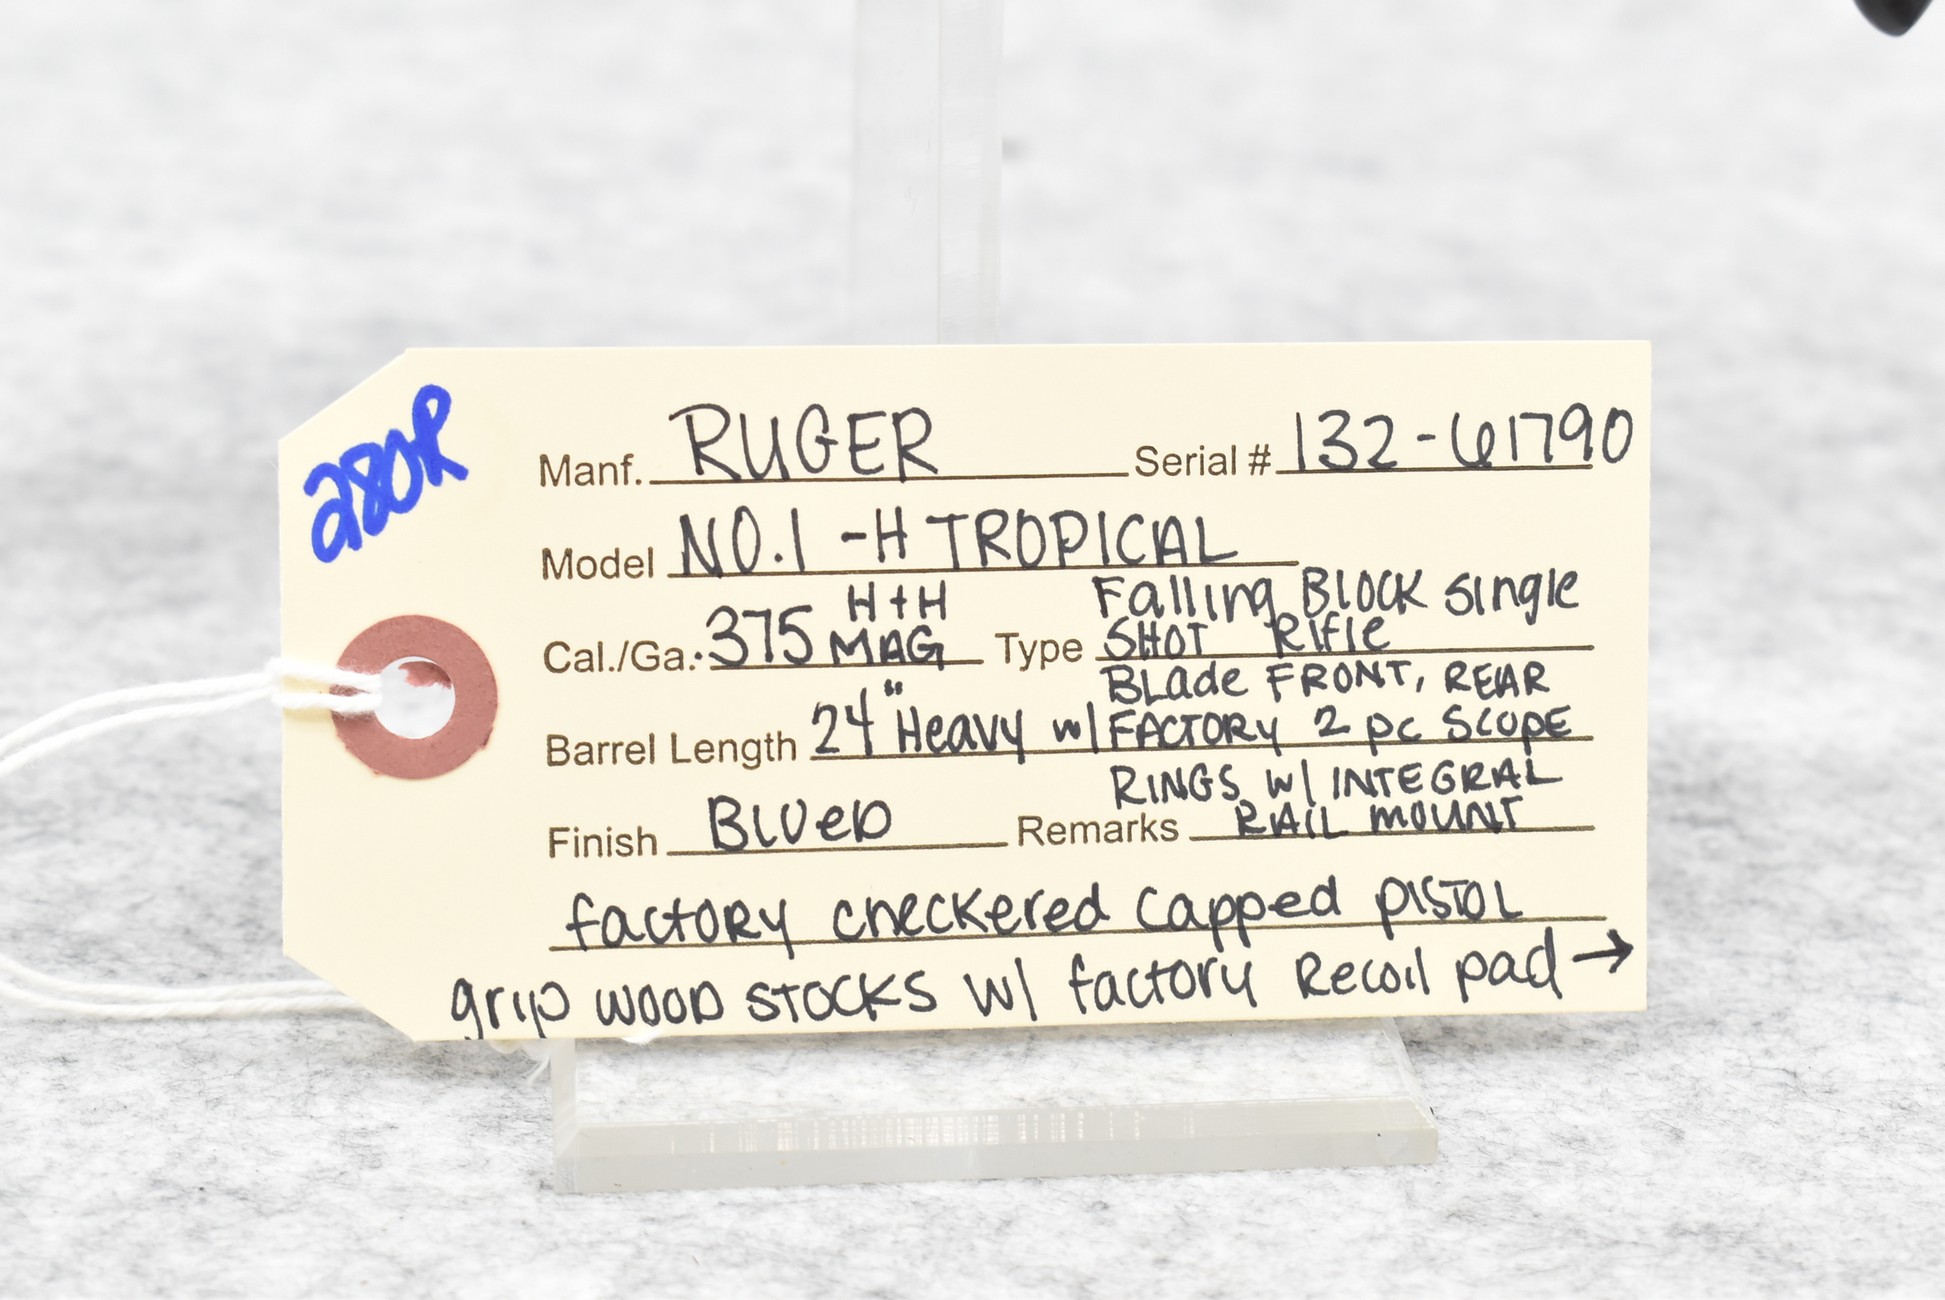 280R
Manf. RUGER Serial # 132-61790
Model NO.1 -H TROPICAL
Cal./Ga. .375 H+H MAG Type Falling BLOCK single SHOT Rifle
Barrel Length 24" Heavy w/ BLade FRONT, REAR FACTORY 2 pc SCOPE
Finish BLUED Remarks RINGS w/ INTEGRAL RAIL MOUNT
factory checkered capped pistol
grip wood stocks w/ factory Recoil pad →